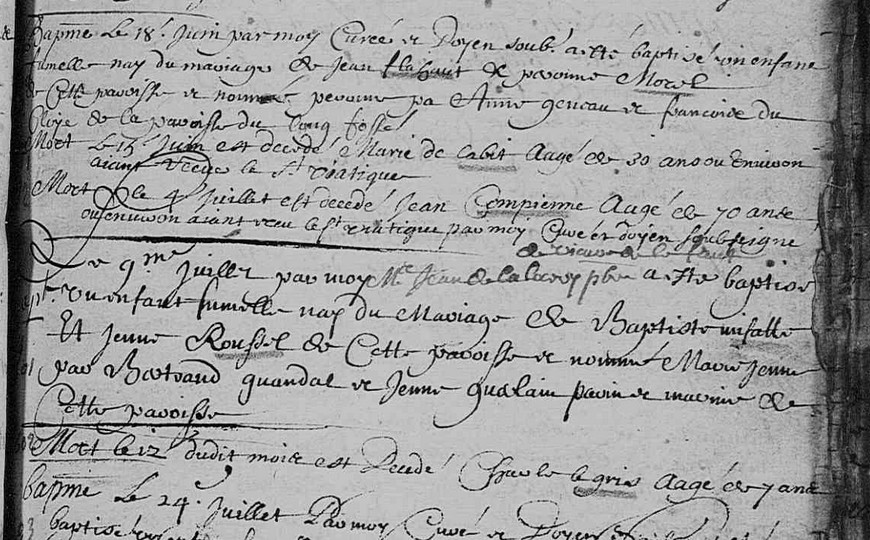 Bapme Le 18e Juin par moy Curéé et Doyen soub. a esté baptisé un enfant
fumelle nay du mariage de Jean flahaut & peronne Morel
de Cette paroisse et nommé peronne pa Anne et francoise du
de la paroisse du Long fossé
Mort Le 15 Juin est decedé Marie de Cabit Aagé de 30 ans ou Environ
aiant receu le St viatique
Mort le 4 Juillet est decedé Jean Compienne Aagé de 70 ans
ou environ aiant receu le St viatique par moy Curé et doyen soubseigné
Le 9me Juillet par moy Mre Jean de pbre a este baptisé
un enfant fumelle nay du Mariage de Baptiste
Et Jenne Roussel de Cette paroisse et nommé Marie Jenne
par Bertrand quandal et Jenne parin et marine de
Cette paroisse
Mort le 12 dudit mois est Decedé Charle le gris Aagé de 7 ans
bapme Le 24. Juillet Par moy Curé et Doyen
baptisé